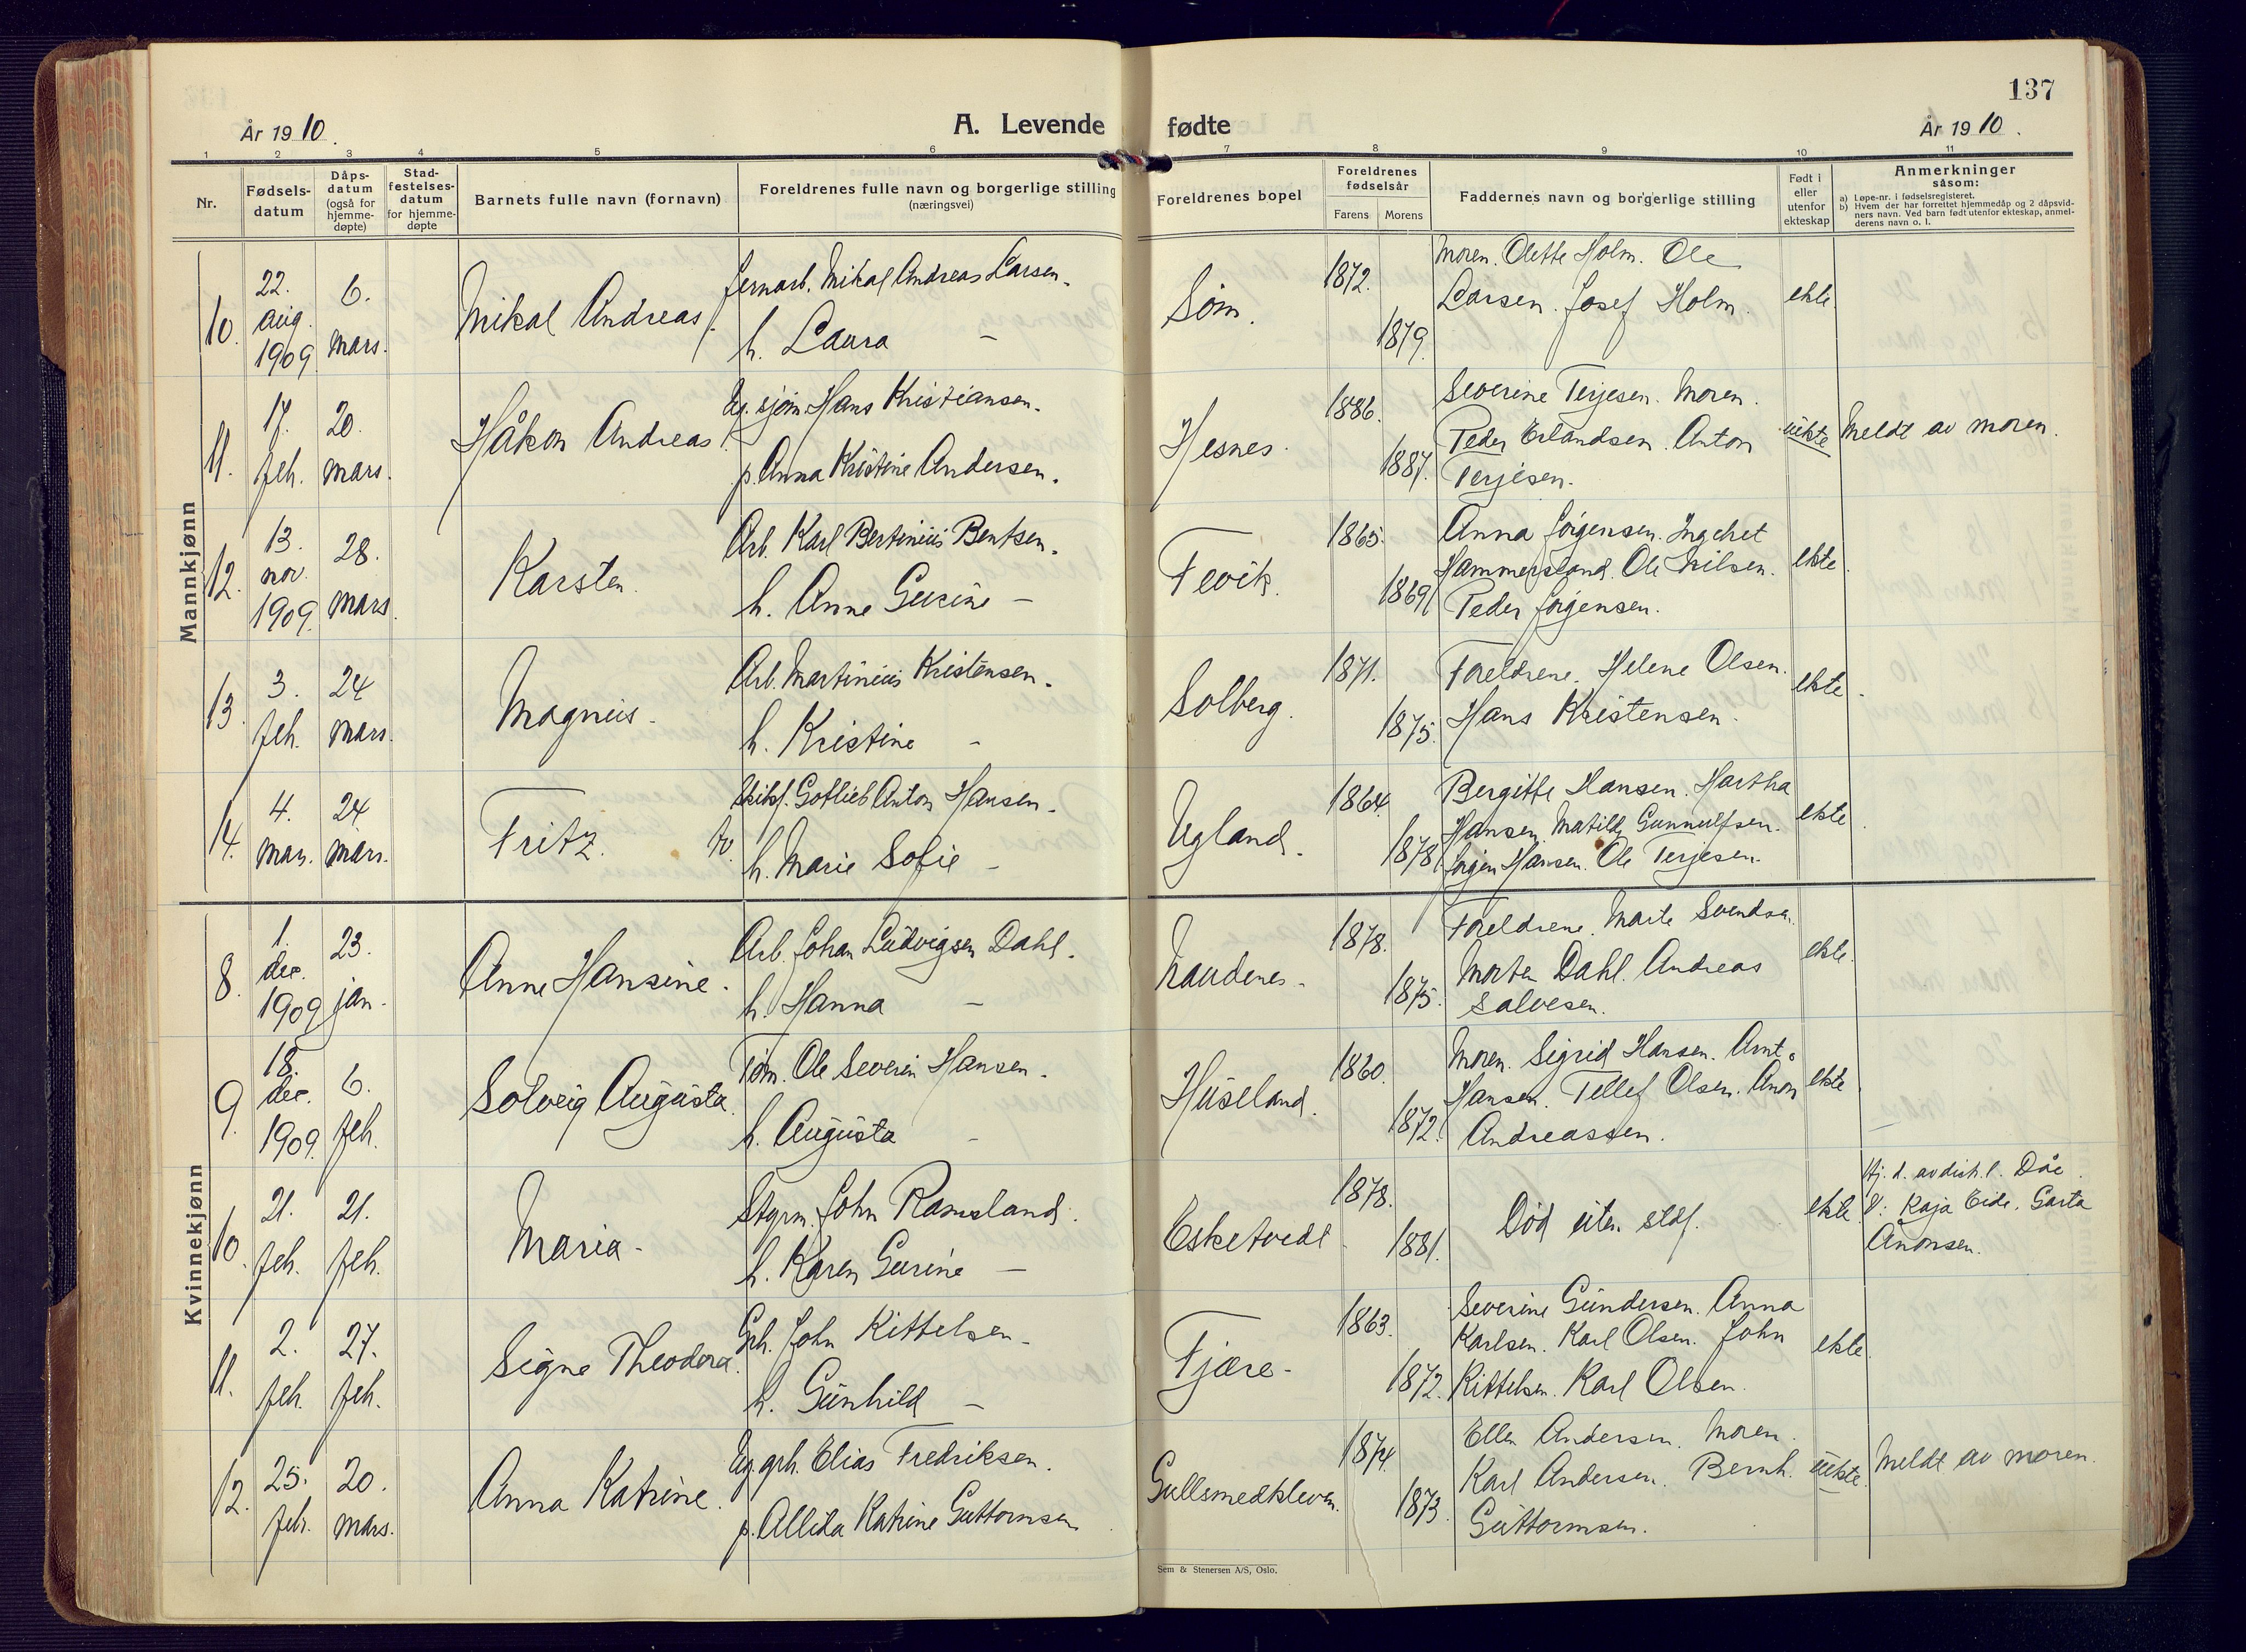 137
År 1910.
A. Levende fødte
År 1910.
1 2 3 4 5 6 7 8 9 10 11
Nr.
Fødsels-
datum
Dåps-
datum
(også for
hjemme-
døpte)
Stad-
festelses-
datum
for hjemme-
døpte
Barnets fulle navn (fornavn)
Foreldrenes fulle navn og borgerlige stilling
(næringsvei)
Foreldrenes bopel
Foreldrenes
fødselsår
Farens Morens
Faddernes navn og borgerlige stilling
Født i
eller
utenfor
ekteskap
Anmerkninger
såsom:
a) Løpe-nr. i fødselsregisteret.
b) Hvem der har forrettet hjemmedåp og 2 dåpsvid-
ners navn. Ved barn født utenfor ekteskap, anmel-
derens navn o. l.
Mannkjønn
10.
22.
aug.
1909.
6.
mars.
Mikal Andreas.
Jernarb. Mikal Andreas Larsen.
h. Laura –
Søm.
1872.
1879.
Moren. Olette Holm. Ole
Larsen. Josef Holm.
ekte.
11.
17.
feb.
20.
mars.
Håkon Andreas.
Ug. sjøm. Hans Kristiansen.
p. Anna Kristine Andersen.
Hesnes.
1886.
1887.
Severine Terjesen. Moren.
Peder Erlandsen. Anton
Terjesen.
uekte
Meldt av moren.
12.
13.
nov.
1909.
28.
mars.
Karsten.
Arb. Karl Bertinius Bentsen.
h. Anne Gurine –
Fevik.
1865.
1869.
Anna Jørgensen. Ingebet
Hammersland. Ole Nilsen.
Peder Jørgensen.
ekte.
13.
3.
feb.
24
mars.
Magnus.
Arb. Martinius Kristensen.
h. Kristine –
Solberg.
1871.
1875.
Foreldrene. Helene Olsen.
Hans Kristensen.
ekte.
14.
4.
mars.
24.
mars.
Fritz. tv.
Gotlieb Anton Hansen.
h. Marie Sofie –
Ugland.
1864.
1878.
Bergitte Hansen. Hartha
Hansen. Matilde Gunnulfsen.
Jørgen Hansen. Ole Terjesen.
ekte.
Kvinnekjønn
8.
1.
dec.
1909
23.
jan.
Anne Hansine.
Arb. Johan Ludvigsen Dahl.
h. Hanna –
Naudenes.
1878.
1875.
Foreldrene. Marte Svendsen.
Morten Dahl. Andreas
Salvesen.
ekte.
9.
18.
dec.
1909.
6.
feb.
Solveig Augusta.
Tøm. Ole Severin Hansen.
h. Augusta –
Huseland.
1860.
1872.
Moren. Sigrid Hansen. Arnt.
Hansen. Tellef Olsen. Anon
Andreassen.
ekte.
10.
21.
feb.
21.
feb.
Maria.
Stgrm. John Ramsland.
h. Karen Gurine –
Esketvedt.
1878.
1881.
Død uten stdf.
ekte.
Hj. d. av distr. l. Dåe.
V: Kaja Eide, Garta
Anonsen.
11.
2.
feb.
27.
feb.
Signe Theodora.
Grh. John Kittelsen –
h. Gunhild –
Fjære –
1863.
1872.
Severine Gundersen. Anna
Karlsen. Karl Olsen. John
Kittelsen. Karl Olsen.
ekte.
12.
25.
febr.
20.
mars.
Anna Katrine.
Ug. grh. Elias Fredriksen.
p. Allida Katrine Guttormsen
Gullsmedkleven.
1874.
1873.
Ellen Andersen. Moren.
Karl Andersen. Bernh.
Guttormsen.
uekte.
Meldt av moren.
Sem & Stenersen A/S, Oslo.